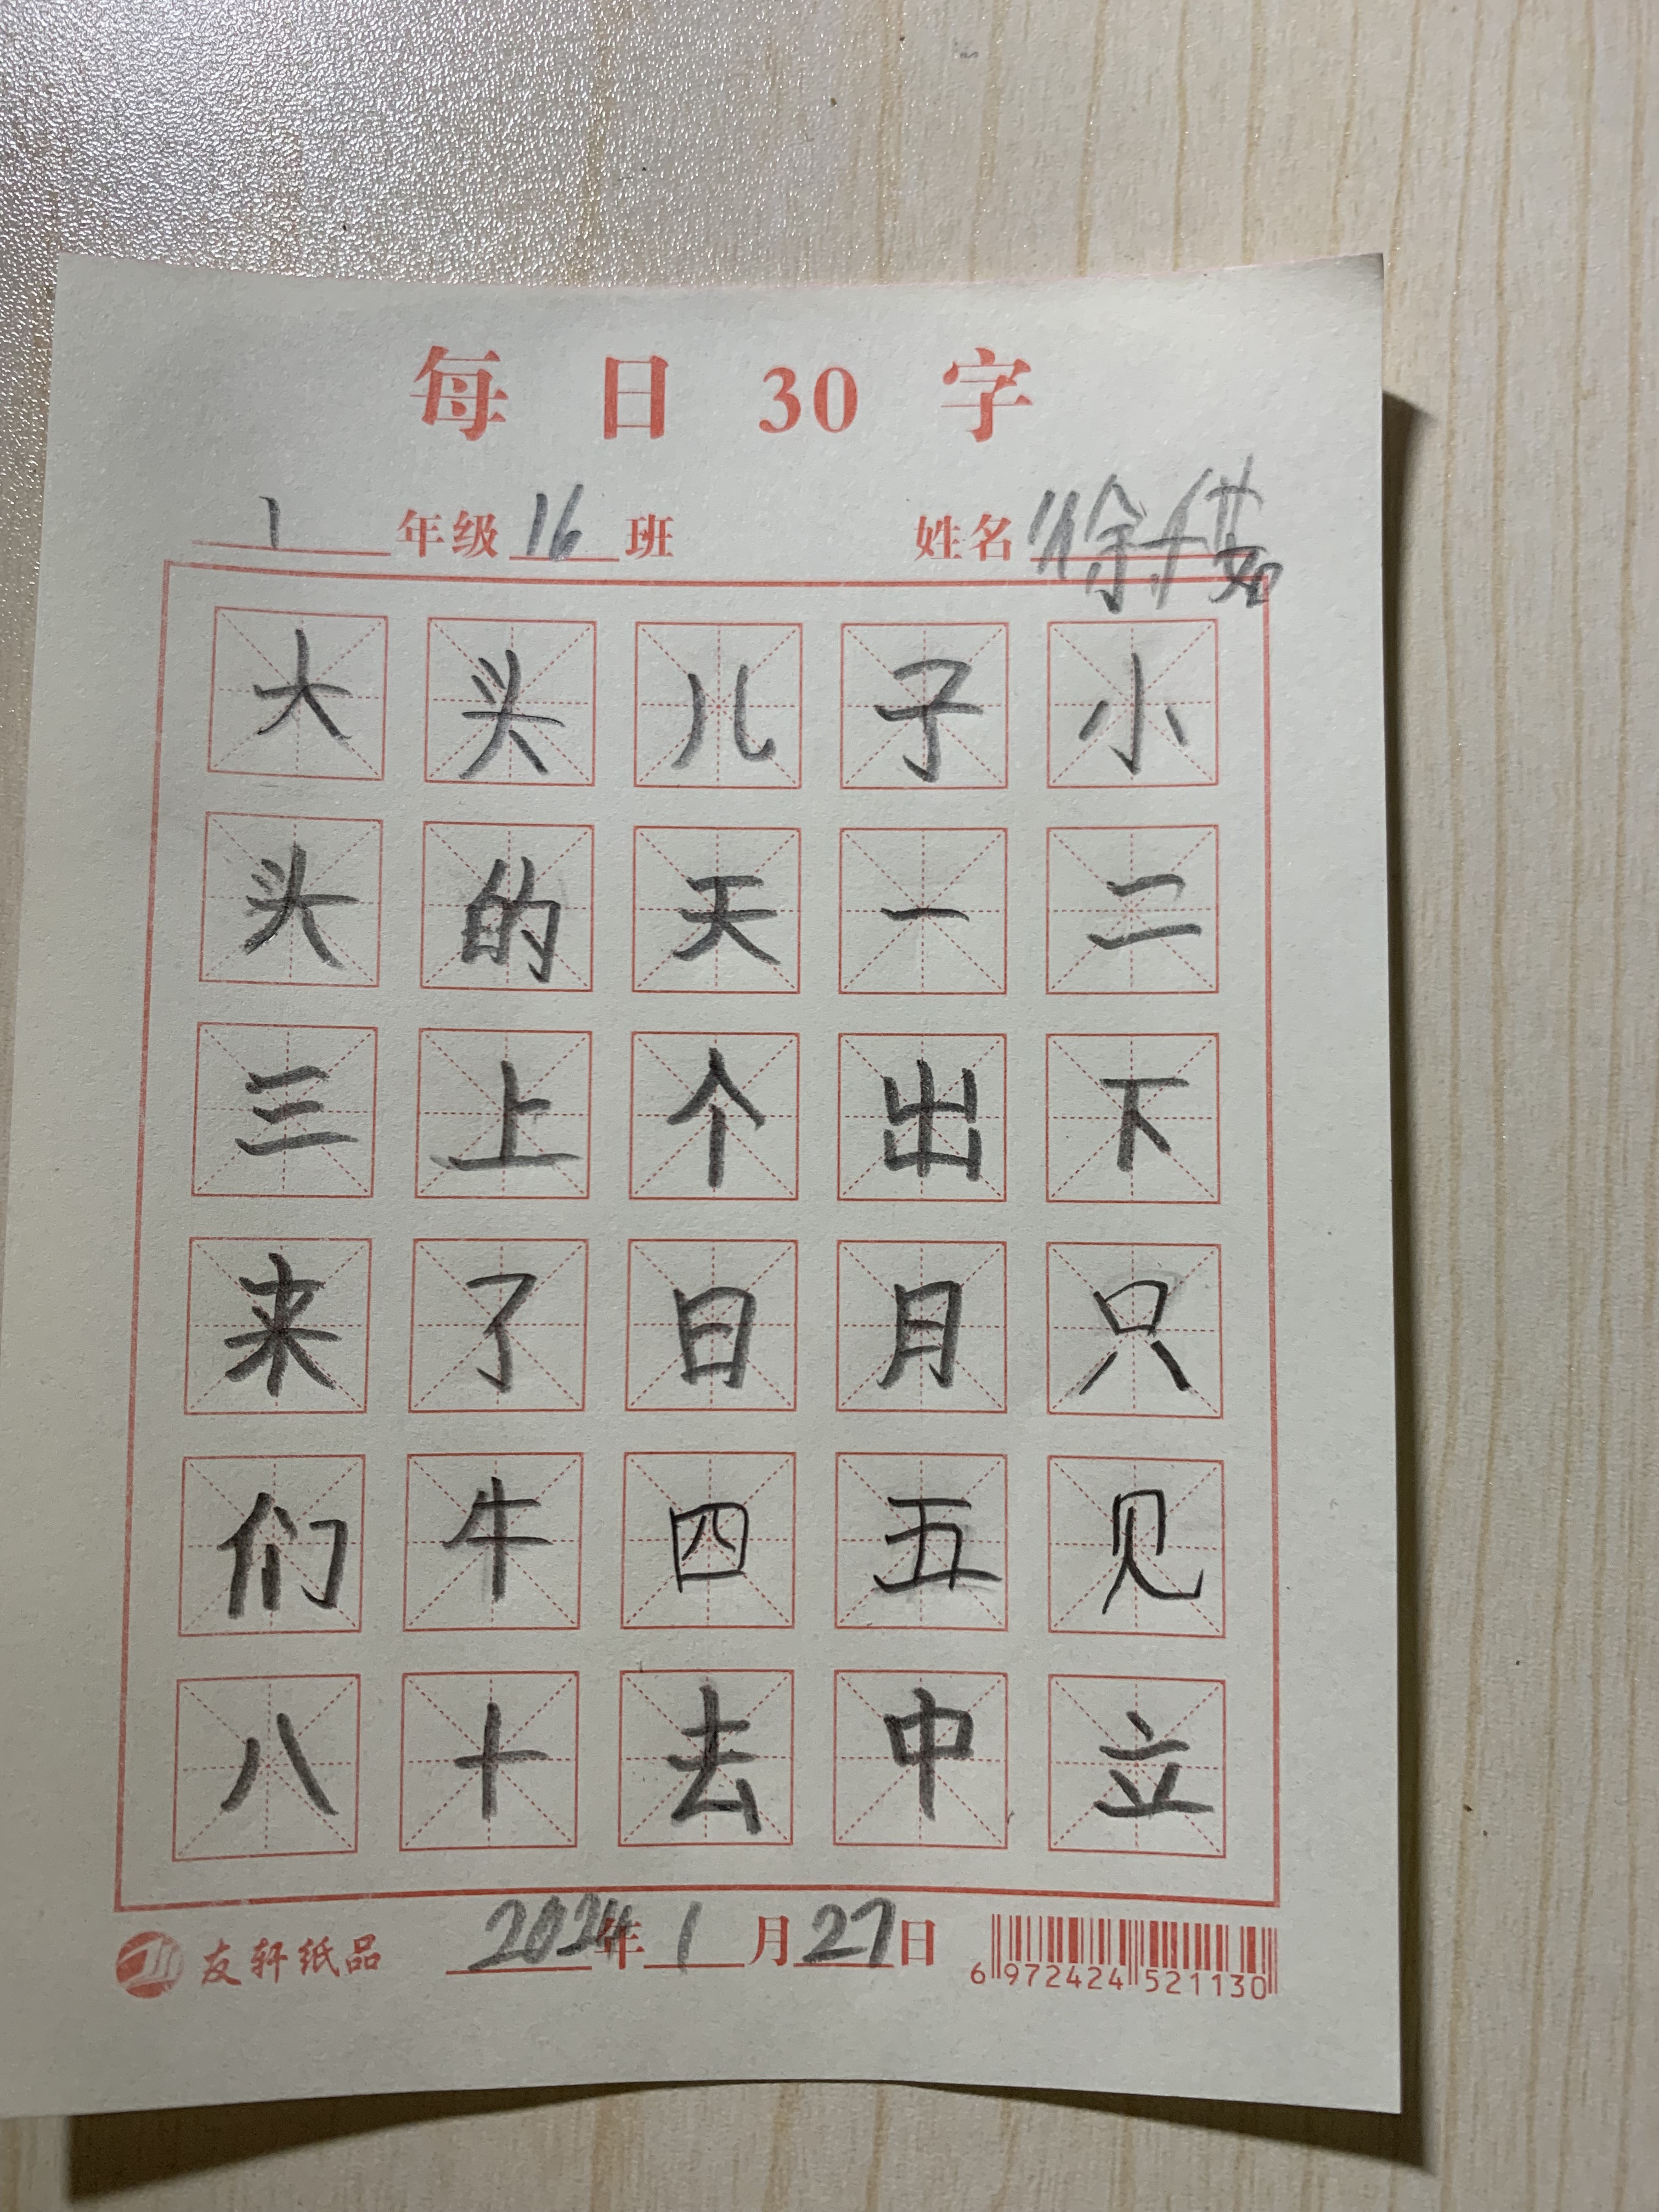 每日30字
1年级16班 姓名徐
大头儿子小
头的天一二
三上个出下
来了日月只
们牛四五见
八十去中立
友轩纸品 2024年1月27日 6 972424 521130